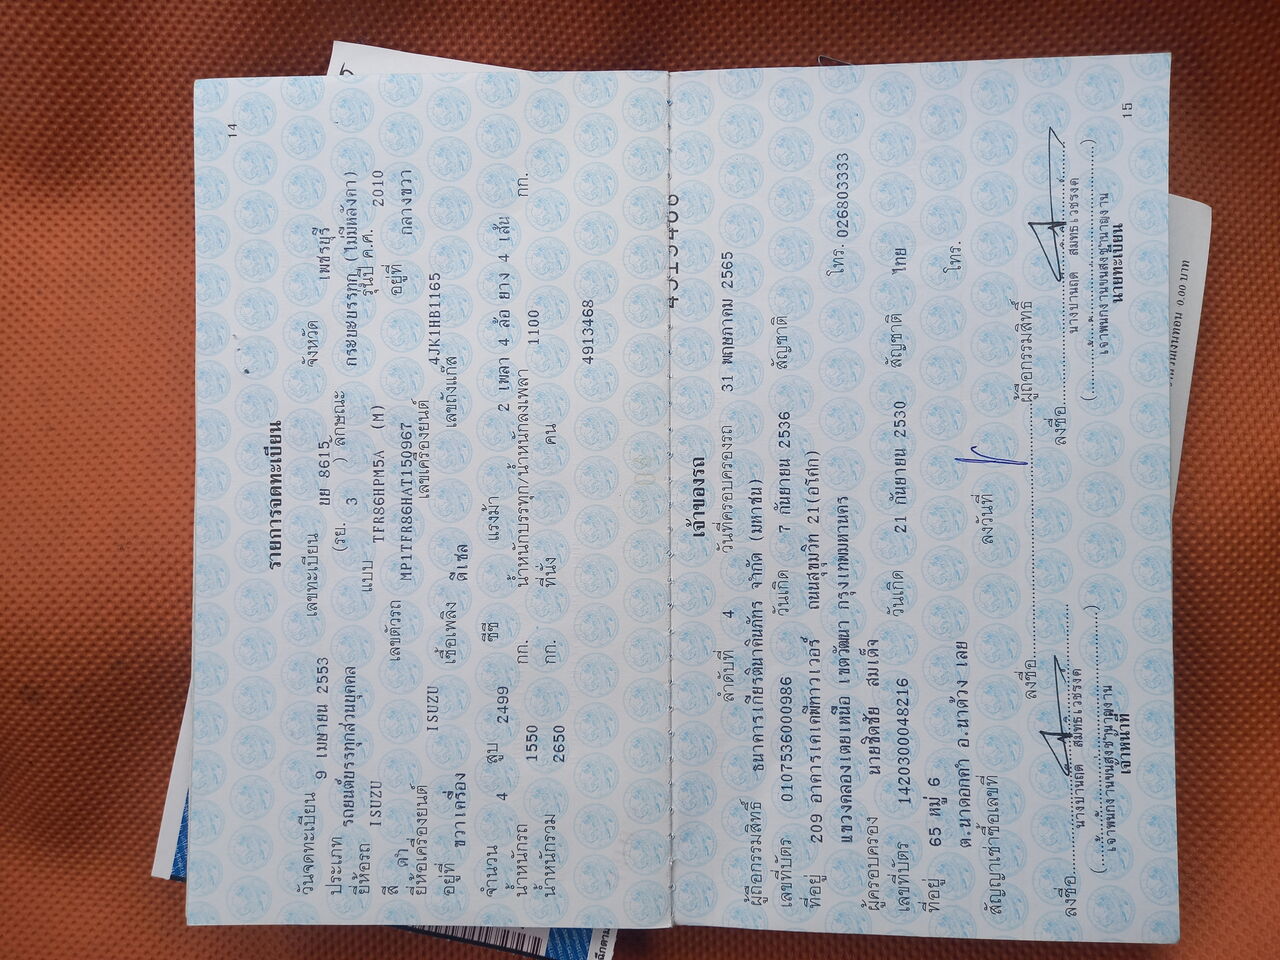 14
รายการจดทะเบียน
วันจดทะเบียน 9 เมษายน 2553 เลขทะเบียน บย 8615 จังหวัด เพชรบุรี
ประเภท รถยนต์บรรทุกส่วนบุคคล (รย. 3 ) ลักษณะ กระบะบรรทุก (ไม่มีหลังคา)
ยี่ห้อรถ ISUZU แบบ TFR86HPM5A (M) รุ่นปี ค.ศ. 2010
สี ดำ เลขตัวรถ MP1TFR86HAT150967 อยู่ที่ กลางขวา
ยี่ห้อเครื่องยนต์ ISUZU เลขเครื่องยนต์ 4JK1HB1165
อยู่ที่ ขวาเครื่อง เชื้อเพลิง ดีเซล เลขถังแก๊ส
จำนวน 4 สูบ 2499 ซีซี แรงม้า 2 เพลา 4 ล้อ ยาง 4 เส้น
น้ำหนักรถ 1550 กก. น้ำหนักบรรทุก/น้ำหนักลงเพลา 1100 กก.
น้ำหนักรวม 2650 กก. ที่นั่ง คน
4913468
เจ้าของรถ
ลำดับที่ 4 วันที่ครอบครองรถ 31 พฤษภาคม 2565
ผู้ถือกรรมสิทธิ์ ธนาคารเกียรตินาคินภัทร จำกัด (มหาชน)
เลขที่บัตร 0107536000986 วันเกิด 7 กันยายน 2536 สัญชาติ
ที่อยู่ 209 อาคารเคเคพีทาวเวอร์ ถนนสุขุมวิท 21(อโศก)
แขวงคลองเตยเหนือ เขตวัฒนา กรุงเทพมหานคร โทร. 026803333
ผู้ครอบครอง นายชิดชัย สมเด็จ
เลขที่บัตร 1420300048216 วันเกิด 21 กันยายน 2530 สัญชาติ ไทย
ที่อยู่ 65 หมู่ 6
ต.นาดอกคำ อ.นาด้วง เลย โทร.
สัญญาเช่าซื้อเลขที่ ลงวันที่
ลงชื่อ ผู้ถือกรรมสิทธิ์
ลงชื่อ ลงชื่อ
เจ้าพนักงานขนส่งชำนาญงาน เจ้าพนักงานขนส่งชำนาญงาน
เจ้าหน้าที่ นายทะเบียน
15
0.00 บาท